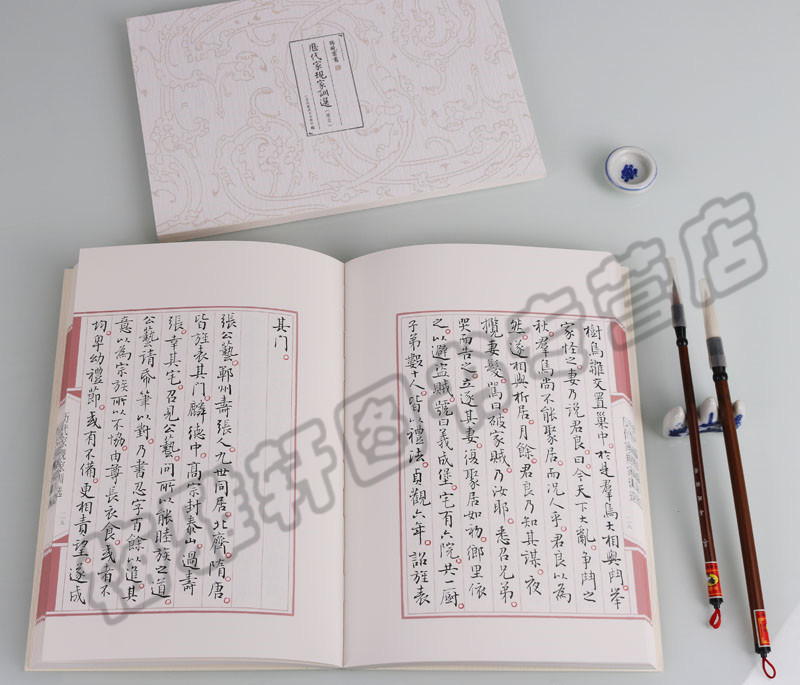 歷代家規家訓選
樹鳥雛交置巢中。於是羣鳥大相與鬥。舉
家怪之。妻乃說君良曰。今天下大亂。爭鬥之
秋。羣鳥尚不能聚居。而況人乎。君良以為
然。遂相與析居。月餘。君良乃知其謀。夜
攬妻髮罵曰。破家賊乃汝耶。悉召兄弟
哭而告之。立逐其妻。復聚居如初。鄉里依
之以避盜賊。號曰義成堡。宅有六院。共一廚
子弟數十人。皆以禮法。貞觀六年。詔旌表
其門。
張公藝。鄆州壽張人。九世同居。北齊隋唐
皆旌表其門。麟德中。高宗封泰山。過壽
張。幸其宅。召見公藝。問所以能睦族之道
公藝請紙筆以對。乃書忍字百餘以進。其
意以為宗族所以不協。由尊長衣食。或者不
均。卑幼禮節。或有不備。更相責望。遂成
雅轩图书专营店